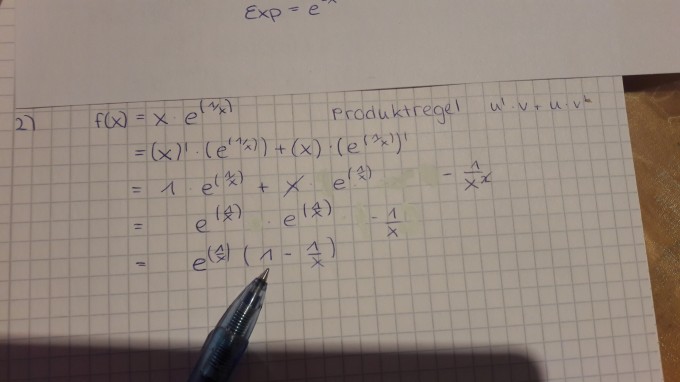 Exp = e
2) f(x) = x · e^(1/x) Produktregel u' · v + u · v'
= (x)' · (e^(1/x)) + (x) · (e^(1/x))'
= 1 · e^(1/x) + x · e^(1/x) - 1/x²
= e^(1/x) · e^(1/x) - 1/x
= e^(1/x) (1 - 1/x)